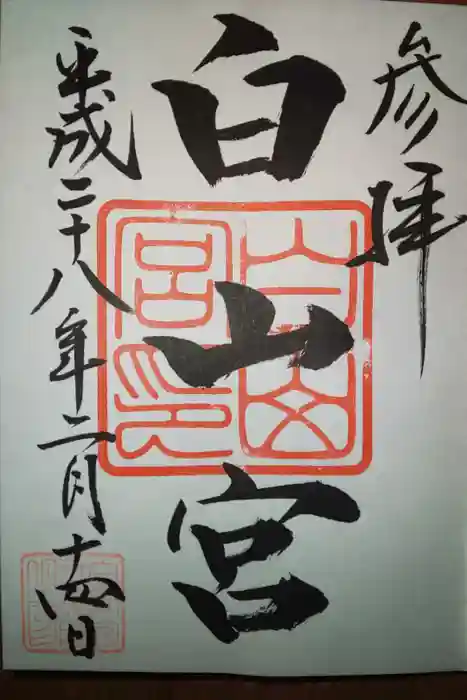 参拝
白山宮
平成二十八年二月十四日